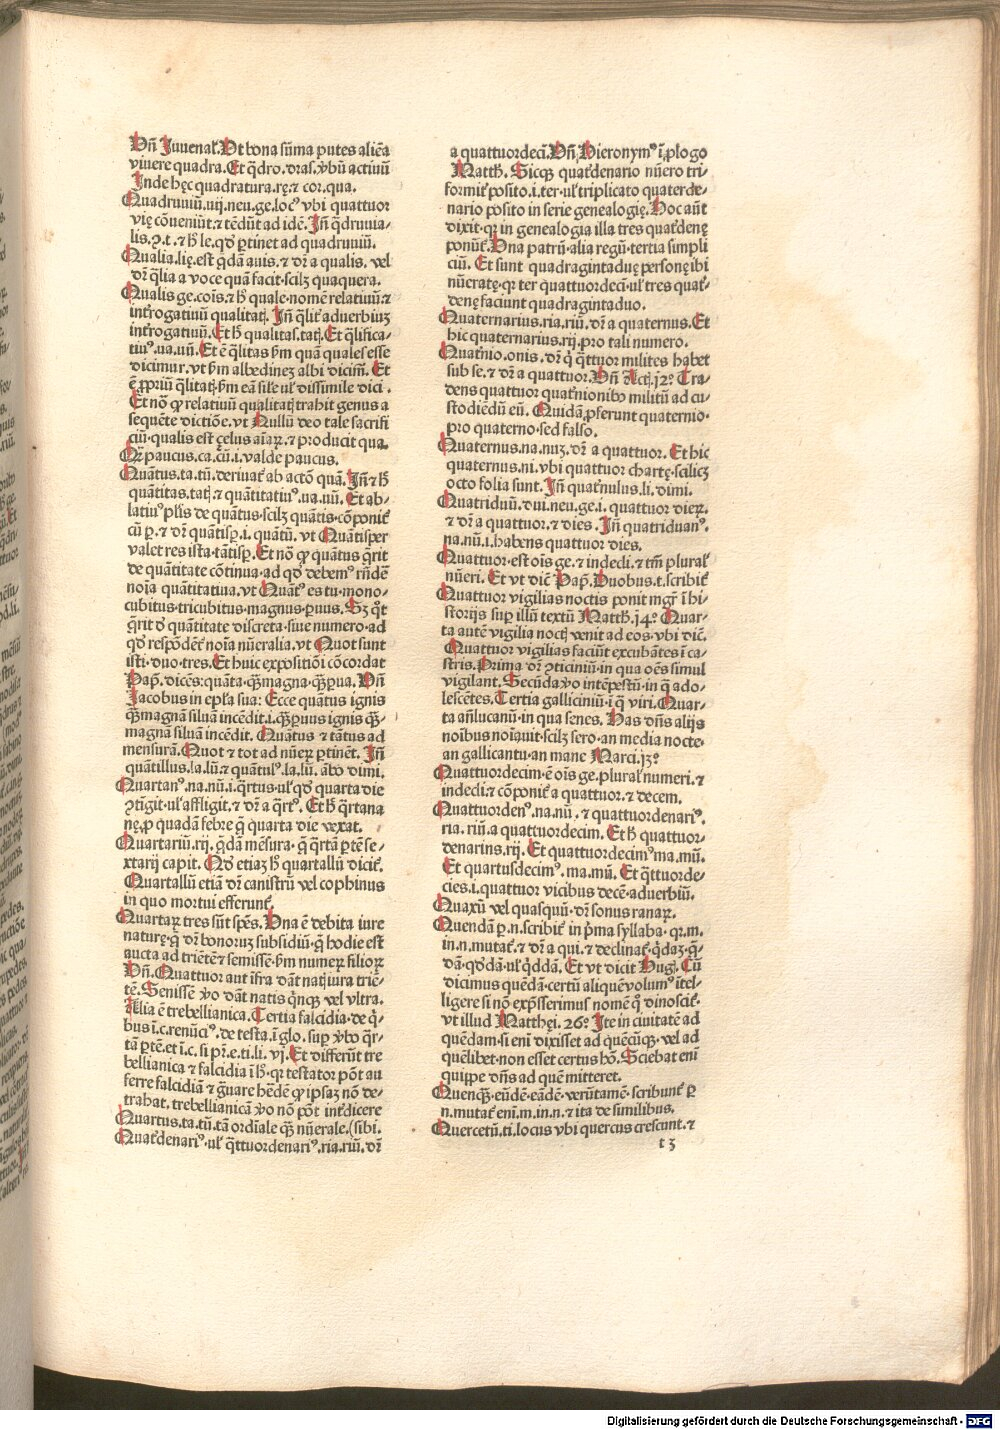 Vn̄ Iuuenal̕. Vt bona sūma putes aliēa
viuere quadra. Et q̄dro. dras. v̓bū actiuū
Inde hęc quadratura. rę. ⁊ cor. qua.
Quadruuiū. uij. neu. ge. loc⁹ vbi quattuor
vię cōueniūt. ⁊ tēdūt ad idē. In̄ q̄druuia-
lis. ꝯ. t. ⁊ h̄ le. qd̓ ꝑtinet ad quadruuiū.
Qualia. lię. est q̄dā auis. ⁊ dr̄ a qualis. vel
dr̄ q̄lia a voce quā facit. scilꝫ quaquera.
Qualis ge. cōis. ⁊ h̄ quale. nomē relatiuū. ⁊
int̓rogatiuū qualitatꝭ. In̄ q̄lit̓ aduerbiuꝫ
int̓rogatiuū. Et h̄ qualitas. tatꝭ. Et q̄lifica-
tiu⁹. ua. uū. Et ē q̄litas ẜm quā quales esse
dicimur. vt ẜm albedineꝫ albi dicim̄. Et
ē ꝓpriū q̄litatꝭ. ẜm eā sil̓e ul̓ dissimile dici.
Et nō ꝙ relatiuū qualitatꝭ trahit genus a
sequēte dictiōe. vt Nullū deo tale sacrifi
ciū. qualis est ȩlus aīaꝝ. ⁊ producit qua.
Qr̄ paucus. ca. cū. i. valde paucus.
Quātus. ta. tū. deriuat̓ ab actō quā. In̄ ⁊ h̄
quātitas. tatꝭ. ⁊ quātitatiu⁹. ua. uū. Et ab-
latiu⁹ pl̓is de quātus. scilꝫ quātis. cōponit̓
cū ꝑ. ⁊ dr̄ quātisꝑ. i. quātū. vt Quātisper
valet res ista. tātisꝑ. Et nō ꝙ quātus q̄rit
de quātitate cōtinua. ad qd̓ debem⁹ rn̄dē̄
noīa quātitatiua. vt Quāt⁹ es tu. mono-
cubitus. tricubitus. magnus. ꝑuus. Sꝫ q̄t
q̄rit d̓ quātitate discreta. siue numero. ad
qd̓ respōdēt̓ noīa nūeralia. vt Quot sunt
isti. duo. tres. Et huic expositiōi cōcordat
Pap̄. dicēs: quāta. q̄ꝫ magna. q̄ꝫ ꝑua. Vn̄
Iacobus in ep̄la sua: Ecce quātus ignis
q̄ꝫ magnā siluā incēdit. i. q̄ꝫ ꝑuus ignis q̄ꝫ-
magnā siluā incēdit. Quātus ⁊ tātus ad
mensurā. Quot ⁊ tot ad nūeꝝ ꝑtinēt. In̄
quātillus. la. lū. ⁊ quātul⁹. la. lū. ābo dimi.
Quartan⁹. na. nū. i. q̄rtus. ul̓ qd̓ quarta die
ꝯtīgit. ul̓ affligit. ⁊ dr̄ a q̄rt⁹. Et h̄ q̄rtana
nę. ꝓ quadā febre q̄ quarta die vexat.
Quartariū. rij. q̄dā mēsura. q̄ q̄rtā ꝑtē se-
xtarij capit. Qd̓ etiaꝫ h̄ quartallū dicit̓.
Quartallū etiā dr̄ canistrū vel cophinus
in quo mortui efferunt̓.
Quartaꝝ tres sūt spēs. Vna ē debita iure
naturę. q̄ dr̄ bonoruꝫ subsidiū. q̄ hodie est
aucta ad triētē ⁊ semissē. ẜm numeꝝ filioꝝ
Vn̄. Quattuor aut īfra dāt natꝭ iura triē-
tē. Semissē v̓o dāt natis q̄nꝙ vel vltra.
Alia ē trebellianica. Tertia falcidia. de q̄-
bus ī. c. renūci⁹. de testa. ī glo. suꝑ v̓bo q̄r-
tā ꝑtē. et ī. c. si pr̄. e. ti. li. vj. Et differūt tre
bellianica ⁊ falcidia ī h̄. qꝛ testator pōt au
ferre falcidiā ⁊ g̓uare hēdē ꝙ ipsaꝫ nō de-
trahat. trebellianicā v̓o nō pōt int̓dicere
Quartus. ta. tū. tā ordīale q̄ꝫ nūerale. (sibi.
Quat̓denari⁹. ul̓ q̄ttuordenari⁹. ria. riū. dr̄
a quattuordecī. Vn̄ Hieronym⁹ ī ꝓlogo
Matth̄. Sicꝙ quat̓denario nūero tri-
formit̓ posito. i. ter. ul̓ triplicato quaterde-
nario posito in serie genealogię. Hoc aūt
dixit. qꝛ in genealogia illa tres quat̓denę
ponūt̓. Vna patrū. alia regū. tertia simpli
ciū. Et sunt quadragintaduę personę ibi
nūeratę. qꝛ ter quattuordecī. ul̓ tres quat̓
denę faciunt quadragintaduo.
Quaternarius. ria. riū. dr̄ a quaternus. Et
hic quaternarius. rij. pro tali numero.
Quat̓nio. onis. dr̄ q̓ q̄ttuor milites habet
sub se. ⁊ dr̄ a quattuor. Vn̄ Actꝭ. j2º Tra-
dens quattuor quat̓nionibꝰ militū ad cu-
stodiēdū eū. Quidā ꝓferunt quaternio.
pro quaterno. sed falso.
Quaternus. na. nuꝫ. dr̄ a quattuor. Et hic
quaternus. ni. vbi quattuor chartę. scilicꝫ
octo folia sunt. In̄ quat̓nulus. li. dimi.
Quatriduū. dui. neu. ge. i. quattuor dieꝝ.
⁊ dr̄ a quattuor. ⁊ dies. In̄ quatriduan⁹.
na. nū. i. habens quattuor dies.
Quattuor. est oīs ge. ⁊ indecli. ⁊ tm̄ plural̓
nūeri. Et vt dic̄ Pap̄. Duobus. t. scribit̓
Quattuor vigilias noctis ponit mgr̄ ī hi-
storijs suꝑ illū textū Matth̄. j4º Quar-
ta autē vigilia noctꝭ venit ad eos. vbi dic̄.
Quattuor vigilias faciūt excubātes ī ca-
stris. Prima dr̄ ꝯticiniū. in qua oēs simul
vigilant. Secūda v̓o intēpestū. in q̄ ado-
lescētes. Tertia galliciniū. ī q̄ viri. Quar-
ta añlucanū. in qua senes. Has dn̄s alijs
noibus noīauit. scilꝫ sero. an media nocte.
an gallicantu. an mane Marci. j3º
Quattuordecim. ē oīs ge. plural̓ numeri. ⁊
indecli. ⁊ cōponit̓ a quattuor. ⁊ decem.
Quattuorden⁹. na. nū. ⁊ quattuordenari⁹.
ria. riū. a quattuordecim. Et h̄ quattuor-
denarius. rij. Et quattuordecim⁹ ma. mū.
Et quartusdecim⁹. ma. mū. Et q̄ttuorde-
cies. i. quattuor vicibus decē. aduerbiū.
Quaxū vel quasquū. dr̄ sonus ranaꝝ.
Quendā ꝑ. n. scribit̓ in p̓ma syllaba. qꝛ. m.
in. n. mutat̓. ⁊ dr̄ a qui. ⁊ declinat̓. q̓daꝫ. q̄-
dā. qd̓dā. ul̓ q̓ddā. Et vt dicit Hug̓. Cū
dicimus quēdā. certū aliquē volum⁹ ītel-
ligere si nō exp̄sserimus nomē q̓ dinoscit̓.
vt illud Matthęi. 26º Ite in ciuitatē ad
quēdam. si enī dixisset ad quēcūꝙ. vel ad
quēlibet. non esset certus hō. Sciebat enī
quippe dn̄s ad quē mitteret.
Quencꝙ. eūdē. eādē. verūtamē. scribunt̓ ꝑ
n. mutat̓ enī. m. in. n. ⁊ ita de similibus.
Quercetū. ti. locus vbi quercus crescunt. ⁊
t 3
Digitalisierung gefördert durch die Deutsche Forschungsgemeinschaft - DFG